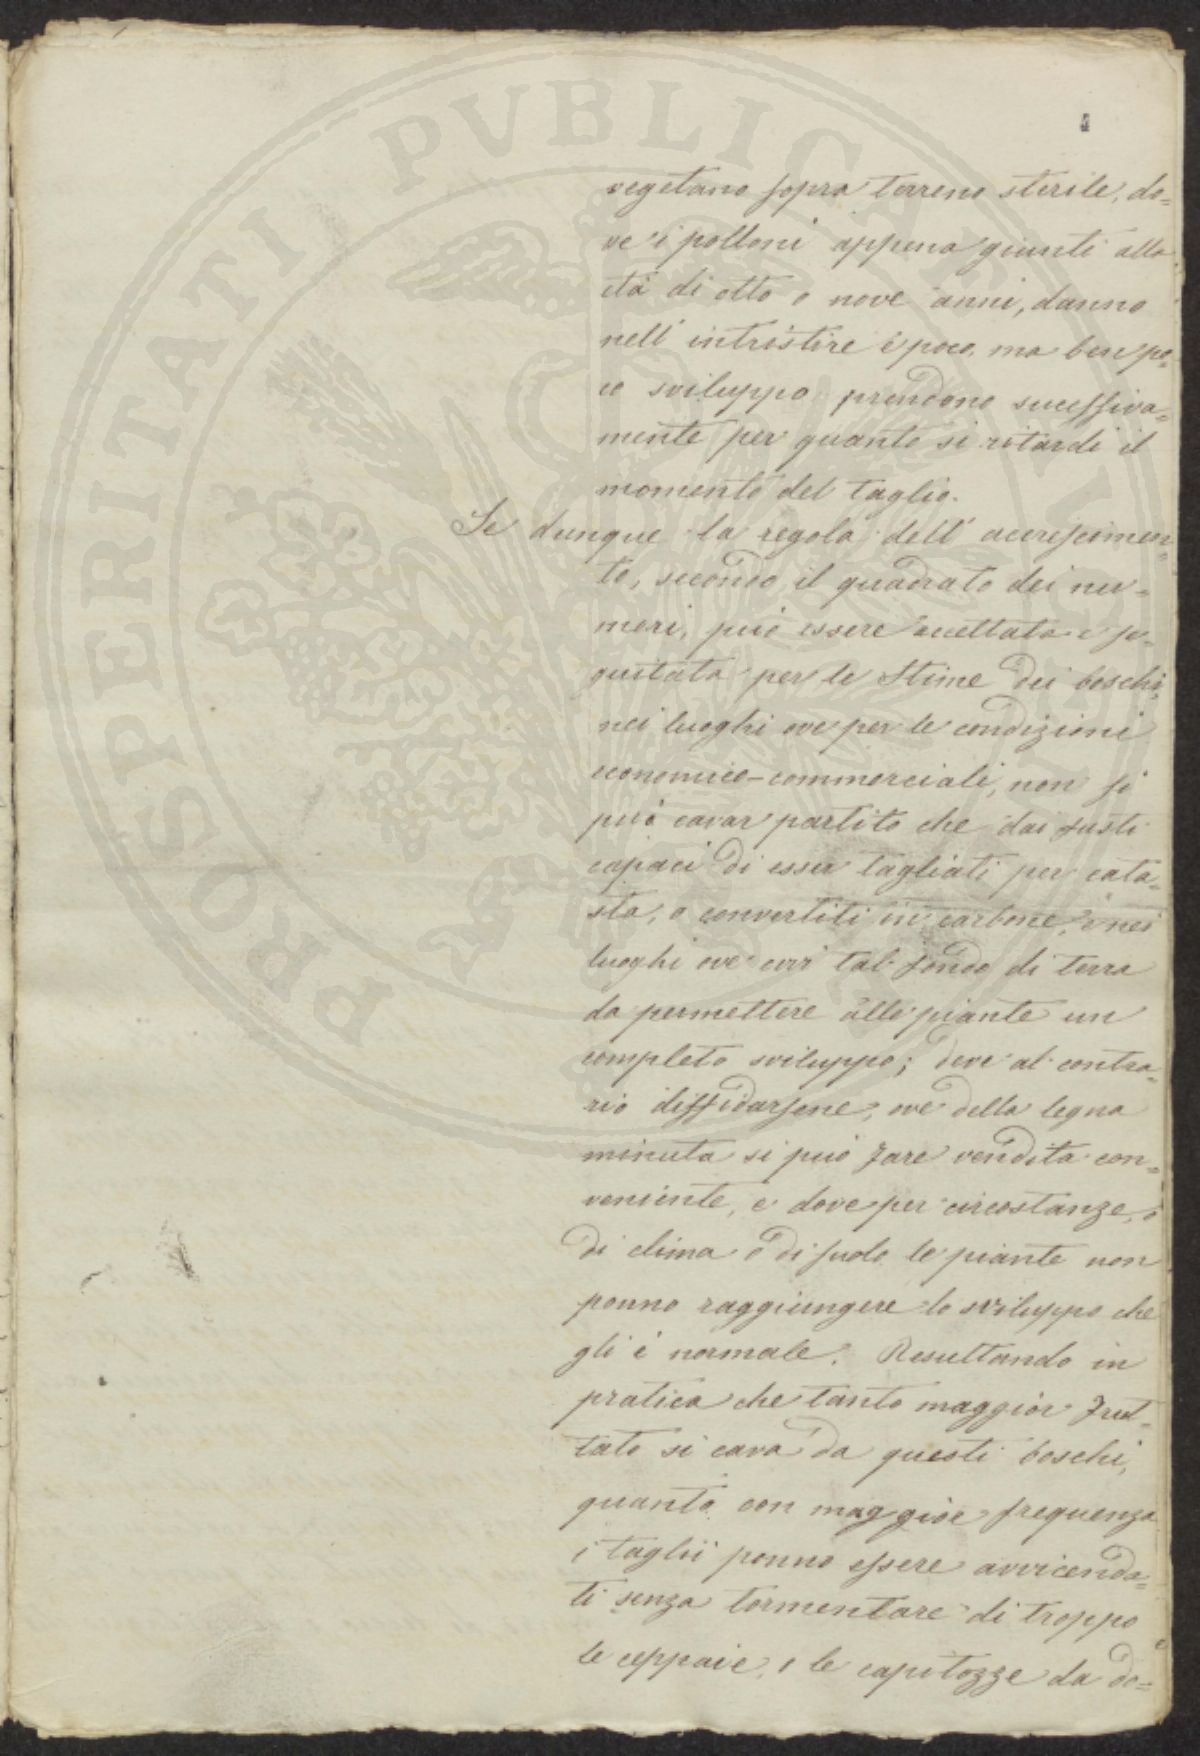 4
vegetano sopra terreno sterile, do=
ve i polloni appena giunti alla
età di otto o nove anni, danno
nell' intristire e poco, ma ben po=
co sviluppo prendono sucessiva=
mente per quanto si ritardi il
momento del taglio.
Se dunque la regola dell' accrescimen=
to, secondo il quadrato dei nu=
meri, può essere accettata e se=
guitata per le Stime dei boschi,
nei luoghi ove per le condizioni
economico-commerciali, non si
può cavar partito che dai fusti
capaci di esser tagliati per cata=
sta, o convertiti in carbone, e nei
luoghi ove evvi tal fondo di terra
da permettere alle piante un
completo sviluppo; deve al contra=
rio diffidarsene, ove della legna
minuta si può fare vendita con=
veniente, e dove per circostanze, o
di clima o di suolo le piante non
ponno raggiungere lo sviluppo che
gli è normale. Resultando in
pratica che tanto maggior frut=
tato si cava da questi boschi,
quanto con maggior frequenza
i taglii ponno essere avvicenda=
ti senza tormentare di troppo
le ceppaie, e le capitozze da do=
PROSPERITATI PVBLICAE